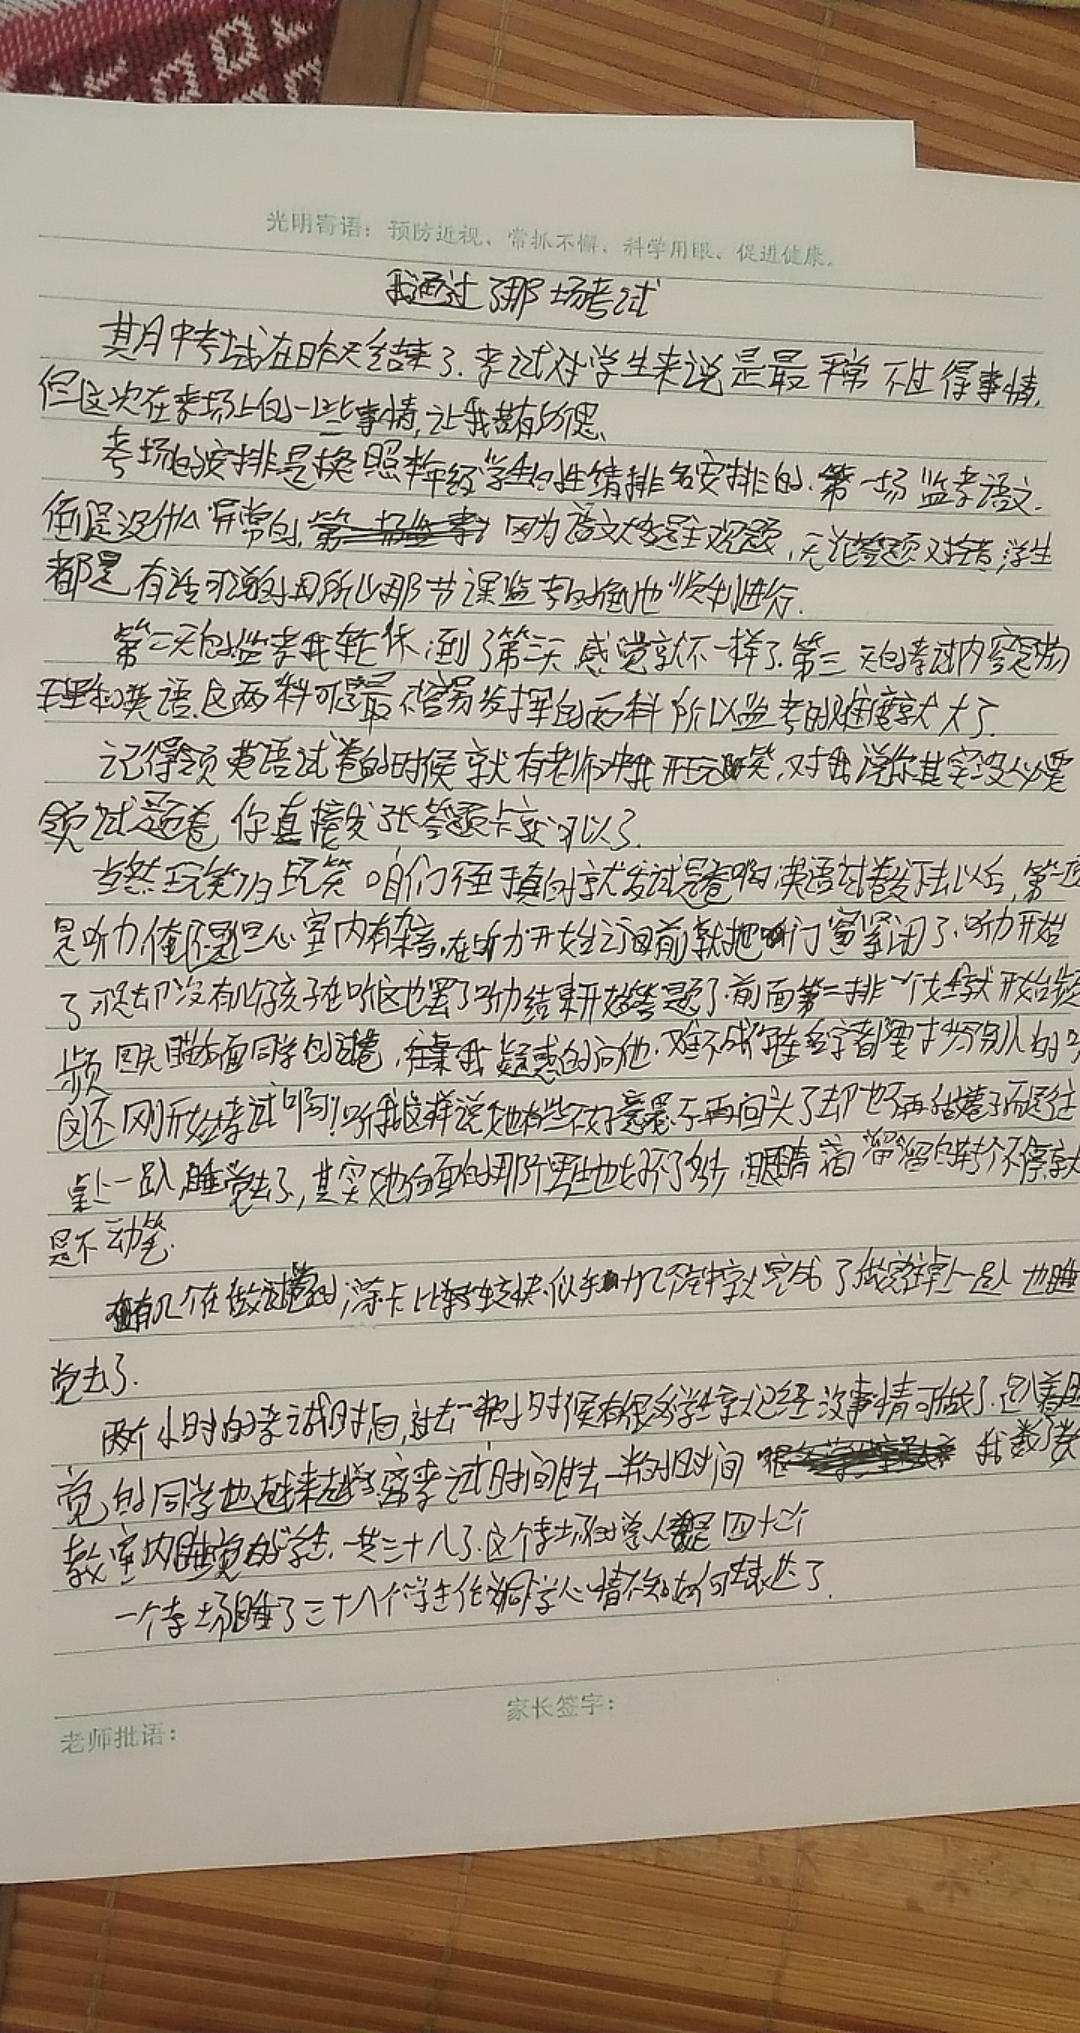 光明寄语：预防近视、常抓不懈、科学用眼、促进健康。
我通过了那场考试
其月中考试在昨天结束了.考试对学生来说是最平常不过得事情,
但这次在考场上的一些事情,让我若有所思、
考场的安排是按照年级学生的成绩排名安排的.第一场监考语文.
倒是没什么异常的, 因为语文大多是主观题,无论答题对错,学生
都是有话可说的,所以那节课监考的倒也顺利进行.
第二天的监考我轮休,到了第三天感觉就不一样了.第三天的考试内容是物
理和英语.这两科可是最不容易发挥的两科所以监考的难度就大了.
记得领英语试卷的时候就有老师冲我开玩笑,对我说你其实没必要
领试题卷,你直接发张答题卡就可以了.
当然玩笑归玩笑咱们还是真的就发试题卷啊,英语试卷发下去以后,第一项
是听力俺还是担心室内有杂音,在听力开始之前就把门窗紧闭了.听力开始
了可是却没有几个孩子在听这也罢了听力结束开始答题了.前面第二排一个女生就开始频
频回头瞄后面同学的试卷, 我疑惑的问他.难不成你连名字都要抄别人的吗
这还刚开始考试啊!听我这样说她有些不好意思不再回头了却也不再做卷子而是往
桌上一趴,睡觉去了,其实她后面的那个男生也好不了多少,眼睛滴溜溜的转个不停就
是不动笔.
有几个在做试卷的涂卡比较快.似乎几分钟就完成了做完往桌上一趴也睡
觉去了.
两个小时的考试时间,过去一半小时候有很多学生就已经没事情可做了.趴着睡
觉的同学也越来越多.等考试时间过去一半的时间 我数了数
教室内睡觉的学生.一共三十八了.这个考场的学生人数是四十个
一个考场睡了三十八个学生 心情不知如何表达了.
老师批语：
家长签字：